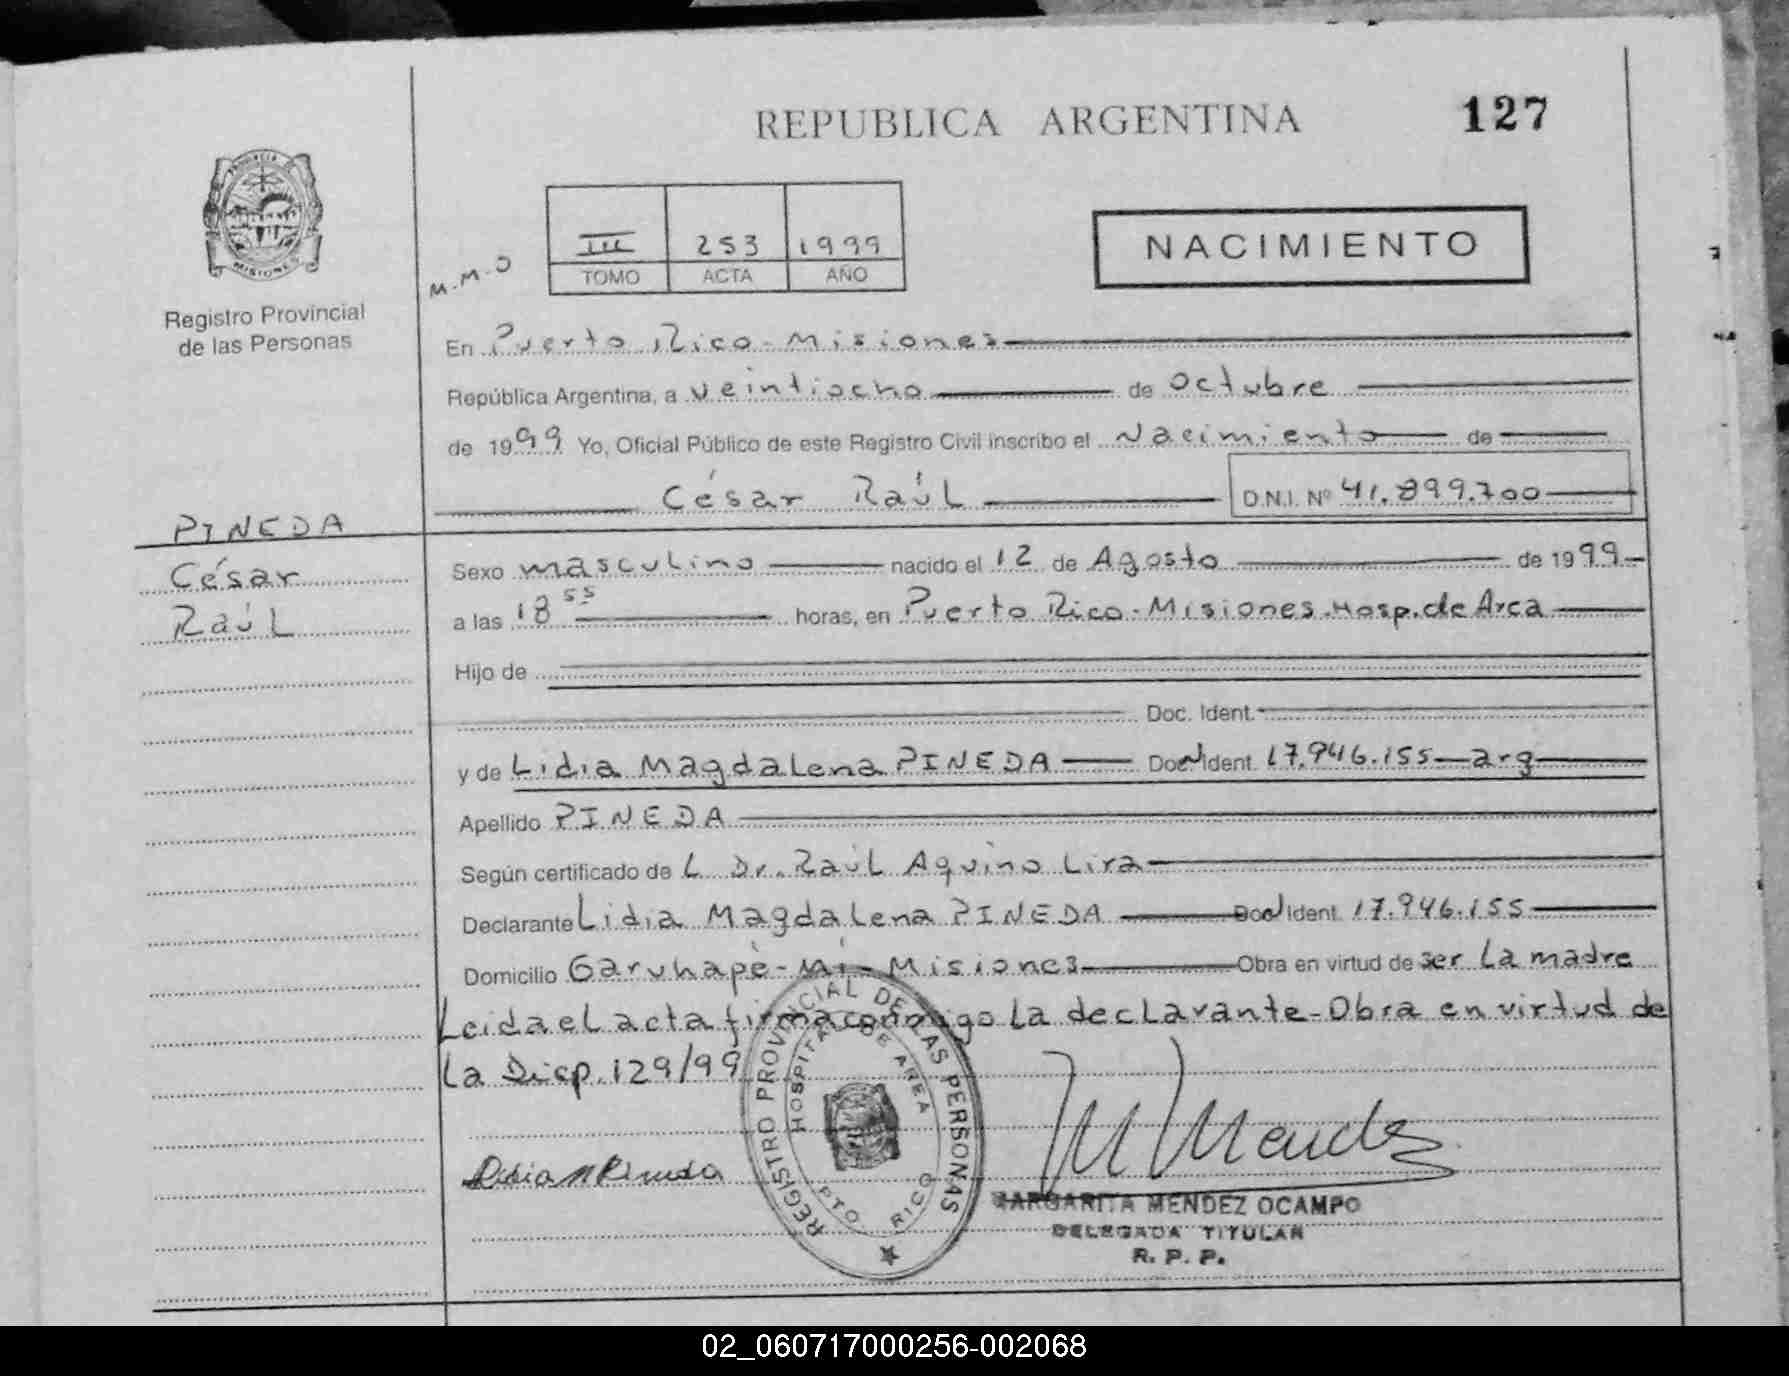 REPUBLICA ARGENTINA
127
PROVINCIA DE
MISIONES
Registro Provincial
de las Personas
M.M.O
III 253 1999
TOMO ACTA AÑO
NACIMIENTO
En Puerto Rico - Misiones
República Argentina, a veintiocho de Octubre
de 1999 Yo, Oficial Público de este Registro Civil inscribo el Nacimiento de
César Raúl D.N.I. Nº 41.899.700
PINEDA
César
Raúl
Sexo masculino nacido el 12 de Agosto de 1999
a las 18 55 horas, en Puerto Rico - Misiones. Hosp. de Area
Hijo de
Doc. Ident.
y de Lidia Magdalena PINEDA Doc. Ident. 17.946.155 - arg
Apellido PINEDA
Según certificado de L Dr. Raúl Aquino Lira
Declarante Lidia Magdalena PINEDA Doc. Ident. 17.946.155
Domicilio Garuhapè - Mí - Misiones Obra en virtud de ser La madre
Leida el acta firma conmigo La declarante - Obra en virtud de
La Disp. 129/99
REGISTRO PROVINCIAL DE LAS PERSONAS
HOSPITAL DE AREA
PTO RICO
Lidia M Pineda
M Mendez
MARGARITA MENDEZ OCAMPO
DELEGADA TITULAR
R. P. P.
02_060717000256-002068